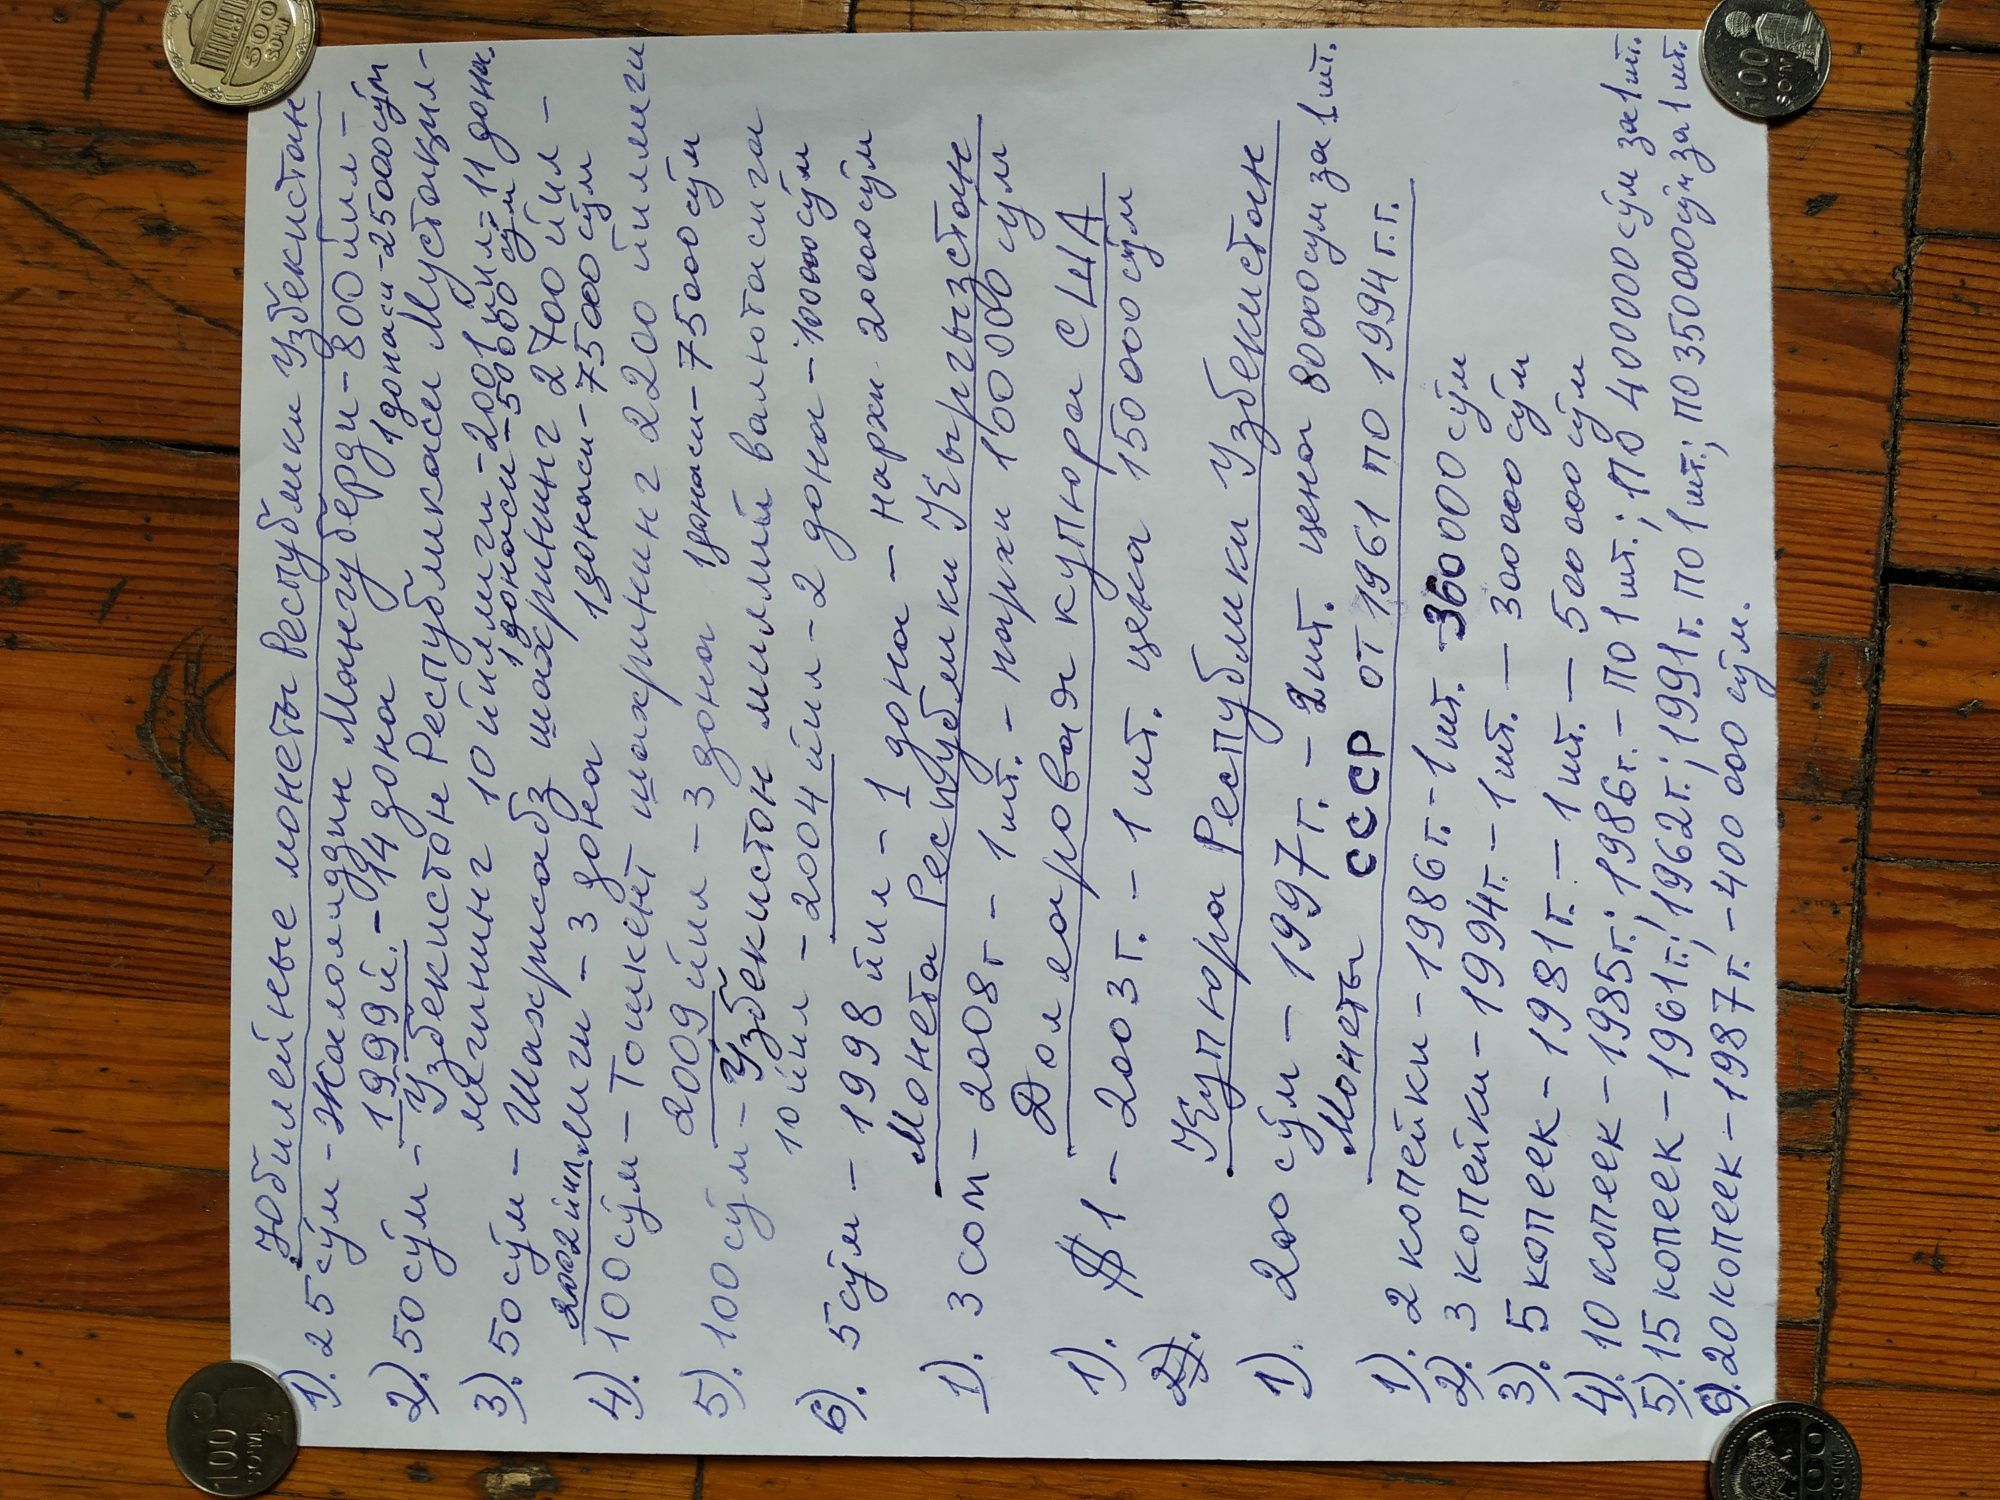 Юбилейные монеты Республики Узбекистан
1). 25 сўм - Жалолиддин Мангуберди - 800 йил -
1999 й. - 14 дона 1 донаси - 25000 сўм
2). 50 сўм - Узбекистон Республикаси Мустақил-
лигининг 10 йиллиги - 2001 йил - 11 дона.
1 донаси - 50000 сўм
3). 50 сўм - Шахрисабз шахрининг 2700 йил-
2002 йил лиги - 3 дона 1 донаси - 75000 сўм
4). 100 сўм - Тошкент шахрининг 2200 йиллиги
2009 йил - 3 дона 1 донаси - 75000 сўм
5). 100 сўм - Узбекистон миллий валютасига
10 йил - 2004 йил - 2 дона - 100000 сўм
6). 5 сўм - 1998 йил - 1 дона - нархи 20000 сўм
Монета Республики Кыргызстан
1). 3 сом - 2008 г - 1 шт. - нархи 100 000 сўм
Долларовая купюра США
1). $1 - 2003 г. - 1 шт. цена 150000 сўм
2).
Купюра Республики Узбекистан
1). 200 сўм - 1997 г. - 2 шт. цена 80000 сум за 1 шт.
Монеты СССР от 1961 по 1994 г.г.
1). 2 копейки - 1986 г. - 1 шт. - 360000 сўм
2). 3 копейки - 1994 г. - 1 шт. - 300000 сўм
3). 5 копеек - 1981 г. - 1 шт. - 500000 сўм
4). 10 копеек - 1985 г.; 1986 г. - по 1 шт.; по 400000 сўм за 1 шт.
5). 15 копеек - 1961 г.; 1962 г.; 1991 г. по 1 шт.; по 350000 сўм за 1 шт.
6). 20 копеек - 1987 г. - 400 000 сўм.
500
SO'M
100
SO'M
100
SO'M
100
SO'M